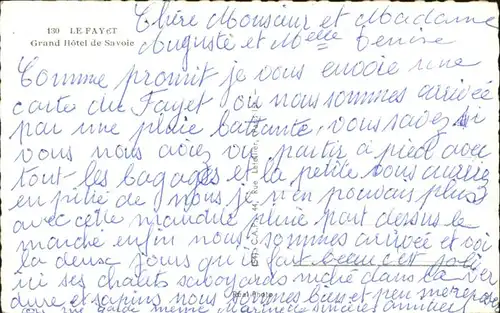 130 LE FAYET
Grand Hôtel de Savoie
Chère Monsieur et Madame
Auguste et Melle Denise
Comme promit je vous envoie une
carte du Fayet où nous sommes arrivée
par une pluie battante, vous savez si
vous nous aviez vu partir a pied avec
tout les bagages et la petite vous auriez
en pitié de nous je n'en pouvais plus
avec cette maudite pluie part dessus le
marché enfin nous sommes arrivée et voi
la deux jours qu'il fait beau c'est joli
ici ses chalets savoyards niché dans la ver
dure et sapins nous sommes bien et peu
même